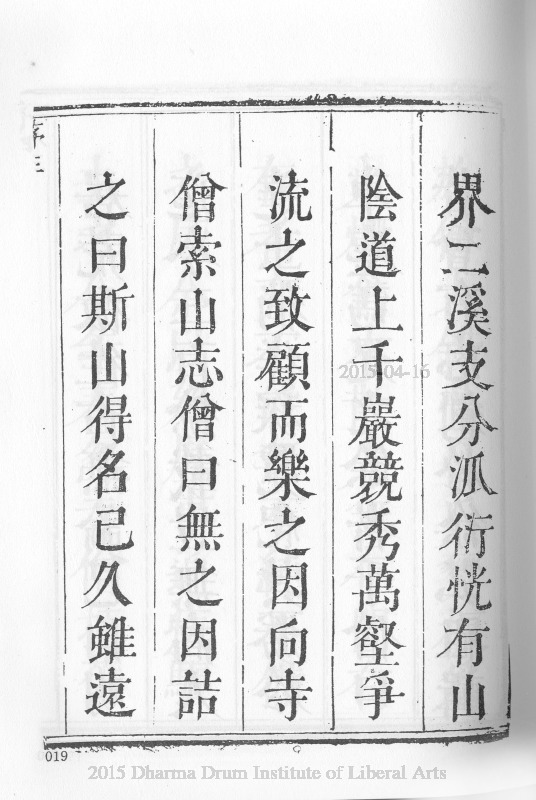 界二溪支分泒衍恍有山
陰道上千巖競秀萬壑爭
流之致顧而樂之因向寺
僧索山志僧曰無之因詰
之曰斯山得名已久雖遠
序三
2015-04-16
019
2015 Dharma Drum Institute of Liberal Arts